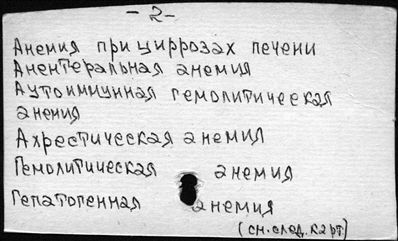 - 2 -
Анемия при циррозах печени
Анентеральная анемия
Аутоиммунная гемолитическая
анемия
Ахрестическая анемия
Гемолитическая анемия
Гепатогенная анемия
(см. след. карт.)